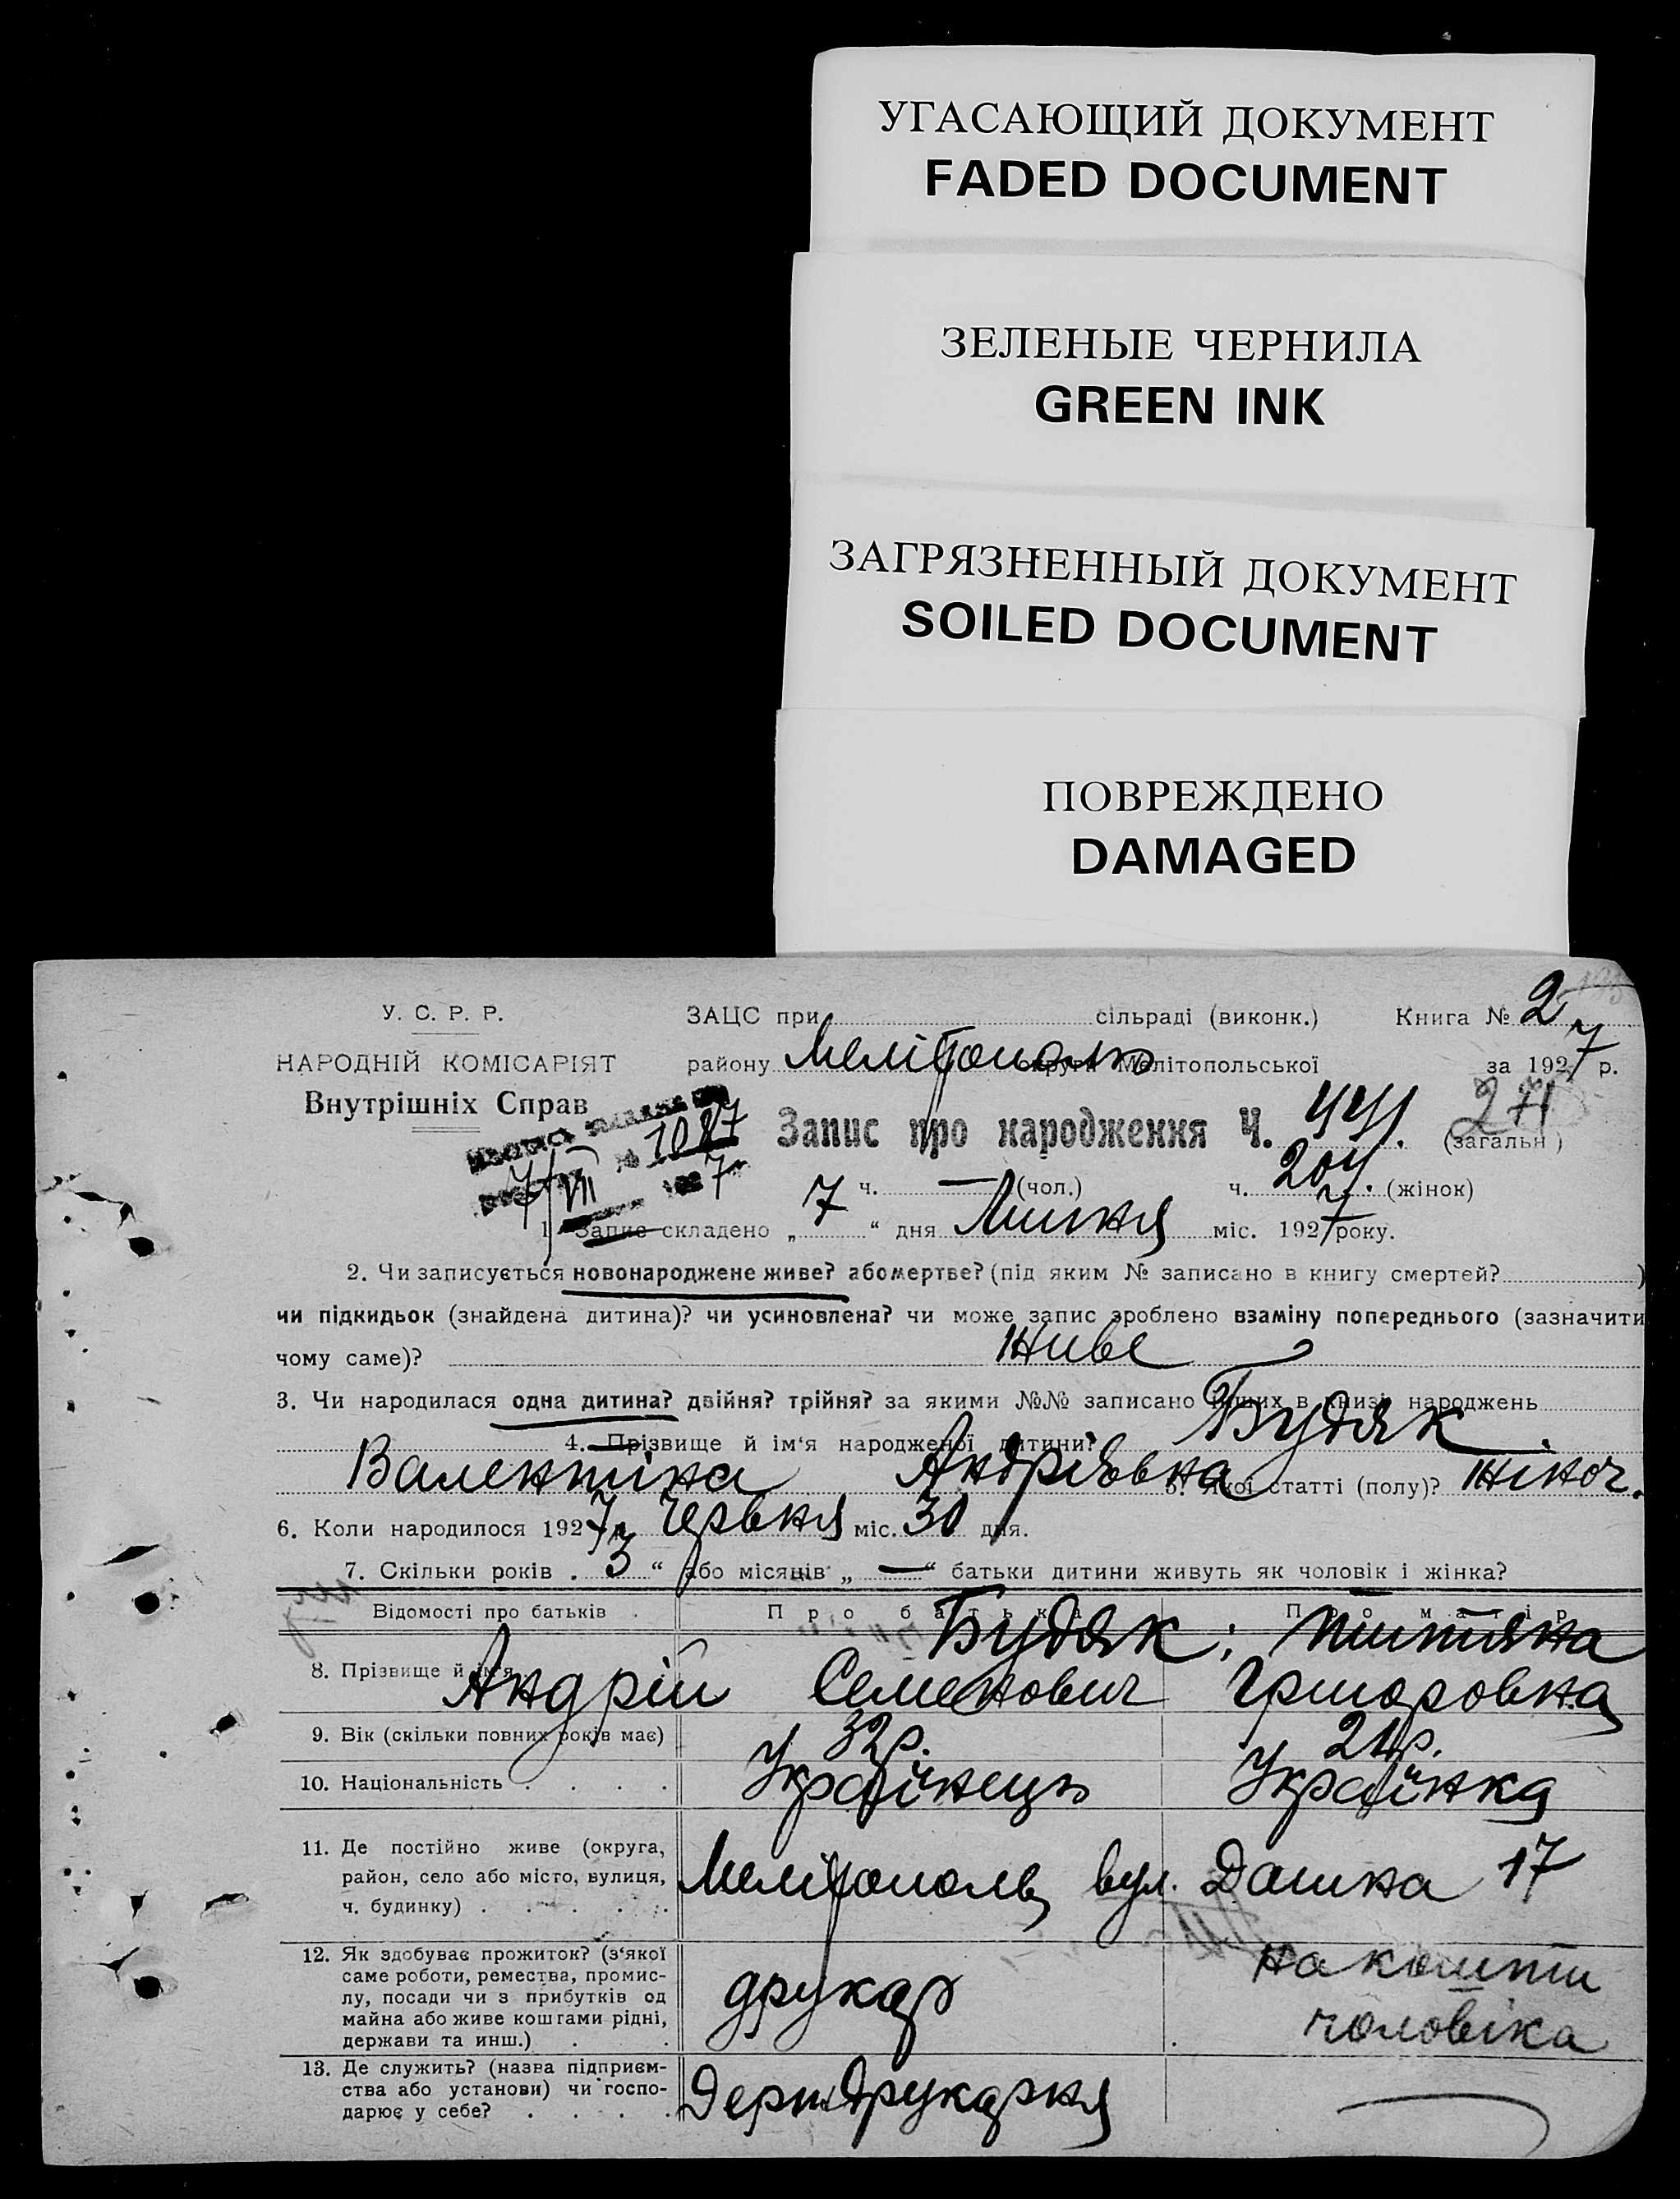 УГАСАЮЩИЙ ДОКУМЕНТ
FADED DOCUMENT
ЗЕЛЕНЫЕ ЧЕРНИЛА
GREEN INK
ЗАГРЯЗНЕННЫЙ ДОКУМЕНТ
SOILED DOCUMENT
ПОВРЕЖДЕНО
DAMAGED
У. С. Р. Р. ЗАЦС при сільраді (виконк.) Книга № 2
НАРОДНІЙ КОМІСАРІЯТ району Мелітополь округи Мелітопольської за 1927 р.
Внутрішніх Справ
1087 Запис про народження Ч. 441. 271 (загальн)
7/VII 1927 ч. — (чол.) ч. 204. (жінок)
1. Запис складено „ 7 “ дня Липня міс. 1927 року.
2. Чи записується новонароджене живе? або мертве? (під яким № записано в книгу смертей? )
чи підкидьок (знайдена дитина)? чи усиновлена? чи може запис зроблено взаміну попереднього (зазначити
чому саме)? Живе
3. Чи народилася одна дитина? двійня? трійня? за якими №№ записано інших в книзі народжень
4. Прізвище й ім‘я народженої дитини? Будяк
Валентина Андріївна 5. Якої статті (полу)? Жіноч.
6. Коли народилося 1927 р. Червня міс. 30 дня.
7. Скільки років „ 3 “ або місяців „ — “ батьки дитини живуть як чоловік і жінка?
Відомості про батьків Про батька Про матір
Будяк;
8. Прізвище й ім‘я Андрій Семенович Григоровна
9. Вік (скільки повних років має) 32р. 21р.
10. Національність . . . . Українець Українка
11. Де постійно живе (округа,
район, село або місто, вулиця, Мелітополь вул. Дашка 17
ч. будинку) . . . . .
12. Як здобуває прожиток? (з‘якої
саме роботи, ремества, промис-
лу, посади чи з прибутків од
майна або живе коштами рідні,
держави та инш.) . . друкар на кошти чоловіка
13. Де служить? (назва підприєм-
ства або установи) чи госпо-
дарює у себе? . . . . Держдрукарня